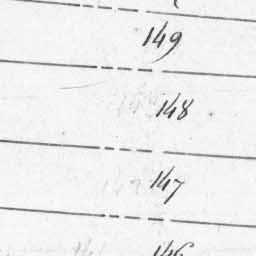 149
148
147
146